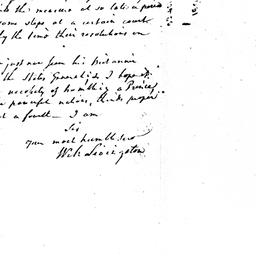 the measure at so late a period
some steps at a certain court
by the time their resolutions on
just now seen his Britannic
the States General is I hope
necessity of humbling a Prince
powerful nation, thinks proper
at a fourth — I am
Sir
your most humble serv
Wil: Livingston